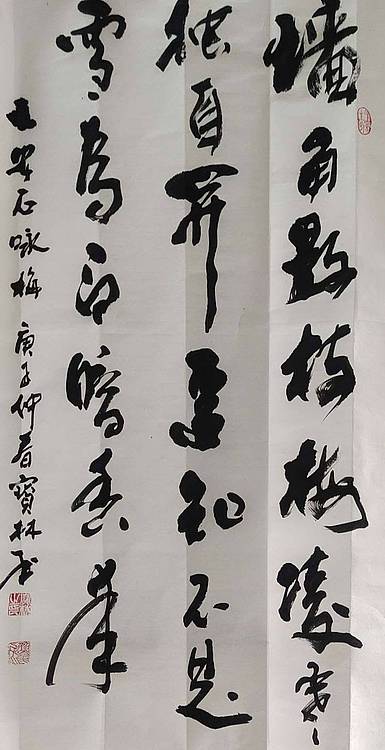 墙角数枝梅凌寒
独自开遥知不是
雪為有暗香来
王安石咏梅 庚子仲春寶林书